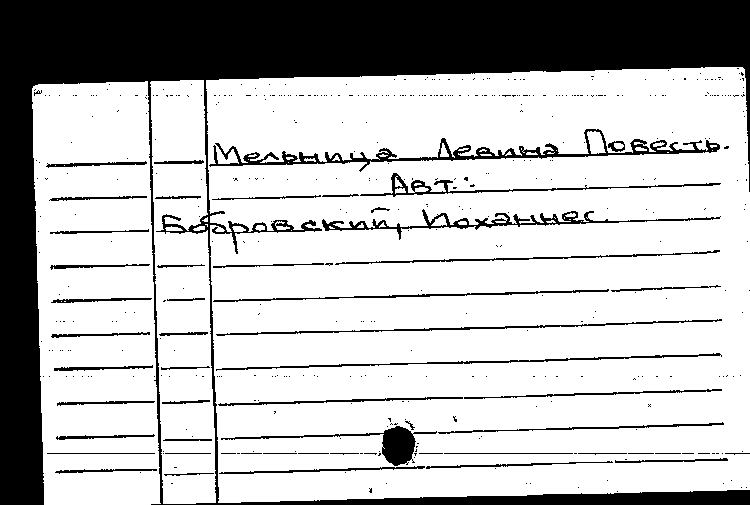 Мельница Левина Повесть.
Авт.:
Бобровский, Иоханнес.